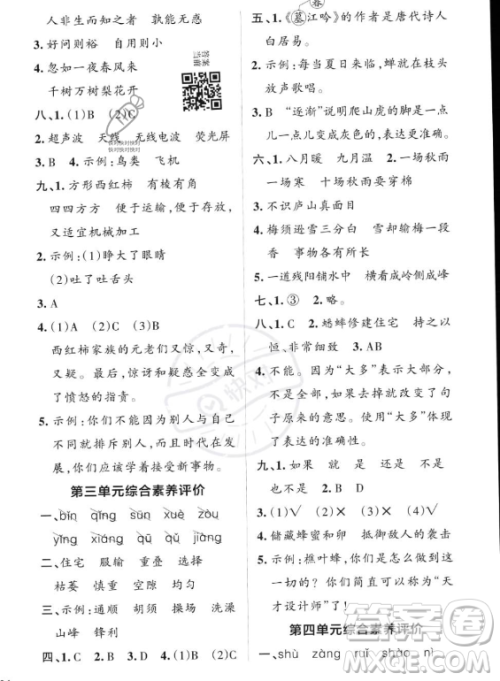 人非生而知之者 孰能无惑
3. 好问则裕 自用则小
4. 忽如一夜春风来
千树万树梨花开
八、1. (1)B (2)C
2. 超声波 天线 无线电波 荧光屏
3. B 4. 示例:鸟类 飞机
九、1. 方形西红柿 有棱有角
四四方方 便于运输,便于存放,
又适宜机械加工
2. 示例:(1)睁大了眼睛
(2)吐了吐舌头
3. A
4. (1)B (2)C (3)B
西红柿家族的元老们又惊,又奇,
又疑。最后,惊讶和疑惑变成了
愤怒的指责。
5. 示例:你们不能因为别人与自己
不同就排斥别人,要学习与别人
友好相处。如果别人身上有优
点,你们应该接受新事物。
第三单元综合素养评价
一、bīn qīng sūn xuè zòu
yīng xiáng qū qǔ jiǎng
二、住宅 服输 重叠 选择
枯萎 慎重 空隙 均匀
三、示例:通顺 胡须 操场 洗澡
山峰 锋利
四、1. (1)× (2)√ 2. (1)× (2)√
五、1. 《暮江吟》的作者是唐代诗人
白居易。
2. 示例:每当夏日来临,知了在枝头
放声歌唱。
3. B “逐渐”说明爬山虎的脚是一点
儿一点儿变成灰色的,表达更准
确、严谨。
六、1. 八月暖 九月温 2. 一场秋雨
一场寒 十场秋雨要穿棉
3. 不识庐山真面目
4. 梅须逊雪三分白 雪却输梅一段
香 事物各有所长
5. 一道残阳铺水中 横看成岭侧成峰
七、1. ③ 2. 略。
八、1. C 2. 蟋蟀修建住宅 持之以
恒、非常细致 3. AB
4. 不能。因为“大多”表示大部分,
不是全部,如果去掉就改变了句
子原来的意思。使用“大多”可以
体现作者表达的准确性。
九、1. 不是 而是 不是 而是
不是 而是
2. (1)√ (2)× (3)√ (4)√
3. (1)√ (2)√ (3)× (4)√
4. 储藏蜂蜜和卵 抵御敌人的袭击
5. 示例:樵叶蜂,你究竟是怎么做到这
一切的？我真想称赞你是“天
才设计师”了！
第四单元综合素养评价
一、shù zàng ruǐ shào nì
答案圈
快对